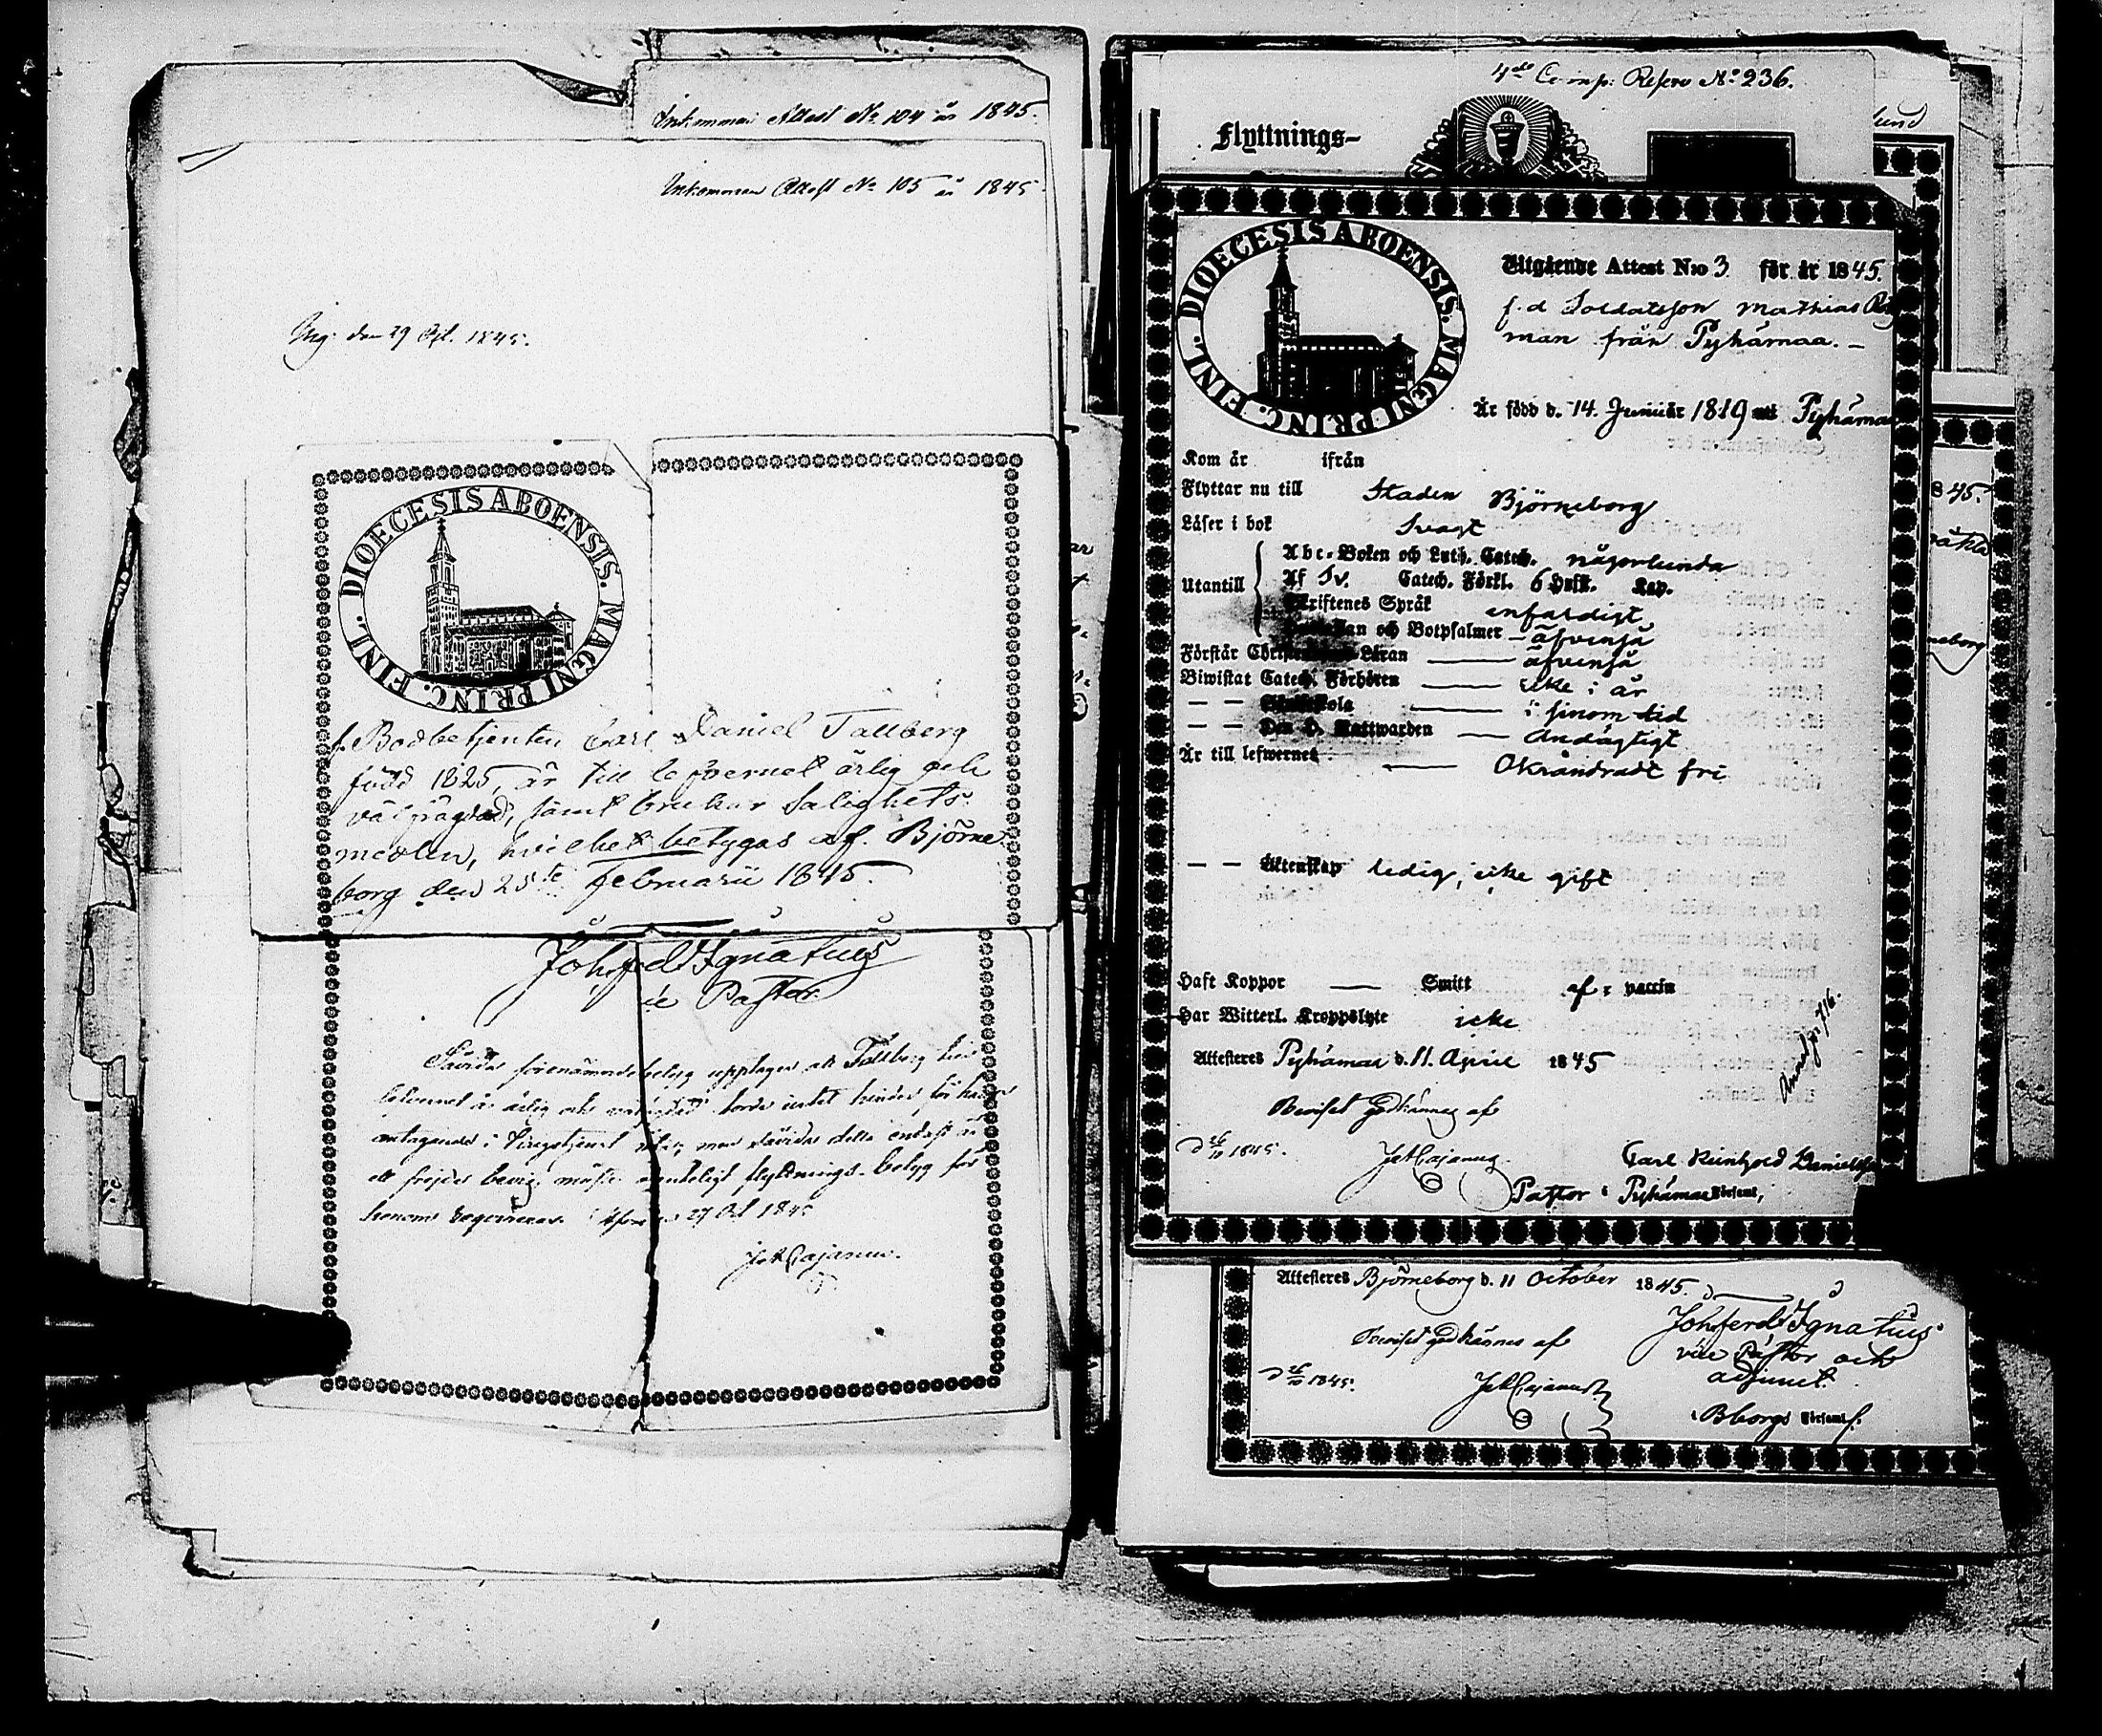 Inkommen Attest No 104 år 1845.
Inkommen Attest No 105 år 1845
Ing. den 29 1845.
DIOECESIS ABOENSIS. MAGNI PRINC. FINL.
f. Bodbetjenten Carl Daniel Tallberg
född 1825, är till lefvernet ärlig och
välfrägdad, samt brukar Salighets
medlen, hvilket betygas af. Björne
borg den 25te Februarii 1845.
Joh. Ferd. Ignatius
v. Pastor.
Såvida förenämnde betyg upptager att Tallberg till
lefvernet är ärlig och hinder för
antagande i men såvida detta endast är
ett frejde bevis, måste flyttnings-betyg för
honom 27 Oct 1845
Cajanus.
4de Comp: Reserv No 236.
Flyttnings-
lund
DIOECESIS ABOENSIS. MAGNI PRINC. FINL.
Utgående Attest N:o 3 för år 1845.
f.d Soldatsson Mathias
man från Pyhämaa. -
Är född d. 14. Junii år 1819 uti Pyhämaa
Kom år ifrån
Flyttar nu till Staden Björneborg
Läser i bok Svagt
Utantill
Abc-Boken och Luth. Catech. någorlunda
Af Sv. Catech. Förkl. 6 Hufst. Kap.
Skriftenes Språk enfaldigt
och Botpsalmer - äfvenså
Förstår Läran — äfvenså
Biwistat Catech. Förhören — icke i år
— — — i sinom tid
— — Den H. Nattwarden — Andägtigt
Är till lefwernet — Oklandradt fri
— — Äktenskap ledig, icke gift
Haft Koppor — Smitt af vaccin
Har Witterl. Kroppslyte icke
Attesteres Pyhämaa d. 11. April 1845
Beviset godkännes af
D 26/10 1845.
Cajanus.
Carl Reinhold
Pastor i Pyhämaa
845.
neborg
Attesteres Björneborg d. 11 October 1845.
Beviset godkännes af
D 26/10 1845.
Cajanus
Joh. Ferd. Ignatius
vice Pastor och
adjunct.
i Bborgs